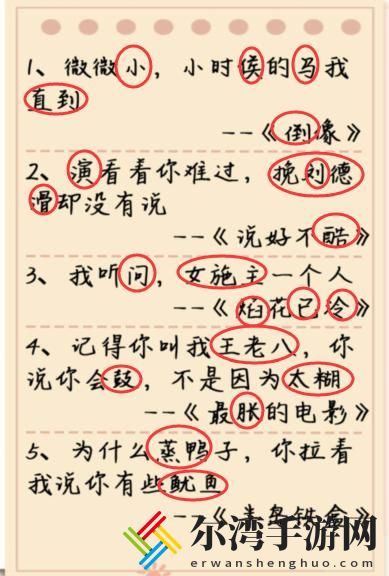 1、微微小，小时侯的马我
直到
--《倒像》
2、演看看你难过，挽刘德
滑却没有说
--《说好不酷》
3、我听问，女施主一个人
--《焰花已冷》
4、记得你叫我王老八，你
说你会鼓，不是因为太糊
--《最胀的电影》
5、为什么蒸鸭子，你拉看
我说你有些鱿鱼
--《
尔湾手游网
erwanshenghuo.com